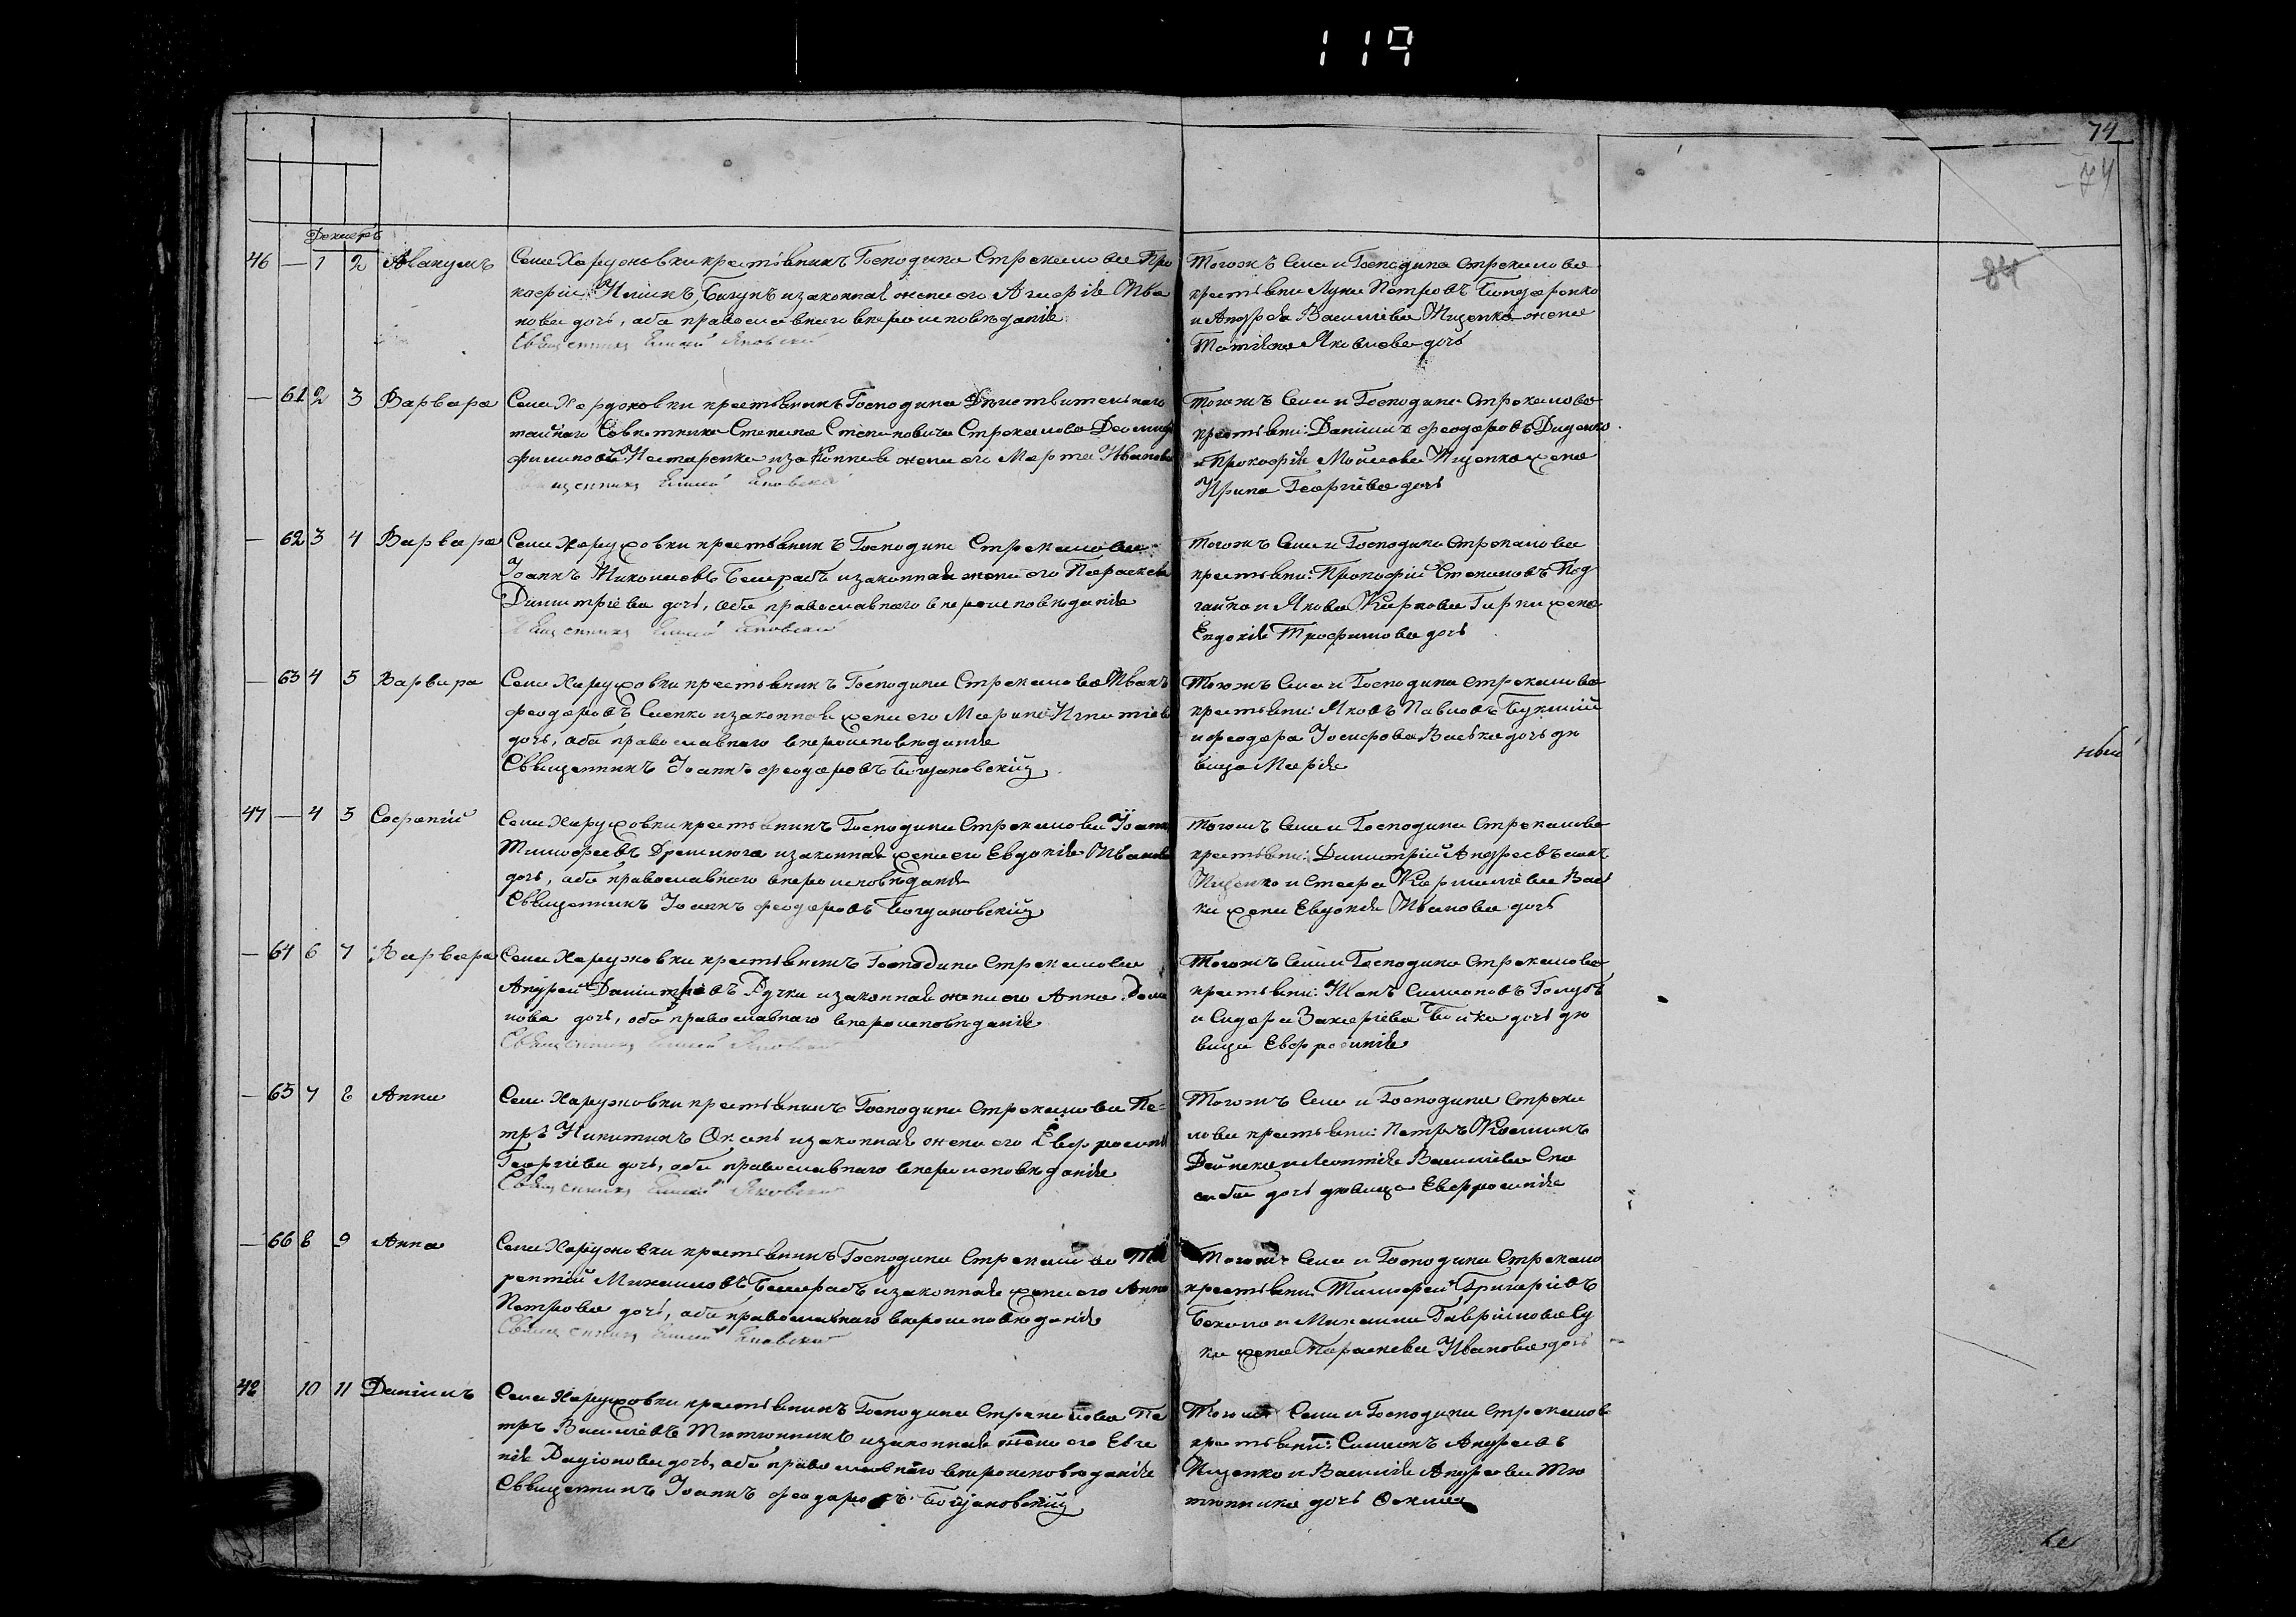 119
74
74
Декабрь
84
46 — 1 2 Авакумъ
Села Харужовки крестьянинъ Господина Стрекалова Про
кофій Ильинъ Бигунъ и законная жена его Агафія Ива
нова дочь, оба православнаго вѣроисповѣданія
Священникъ Яновскій
Тогожъ Села и Господина Стрекалова
крестьяни Лука Петровъ Бондаренко
и Андрея Василіева Тищенка жена
Татіана Яковлева дочь
— 61 2 3 Варвара
Села Харужовки крестьянинъ Господина Дѣйствительнаго
тайнаго Совѣтника Степана Степановича Стрекалова
Филиповъ Нестеренко и законная жена его Марта Иванова
Священникъ Яновскій
Тогожъ Села и Господина Стрекалова
крестьяни: Даніилъ Феодоровъ Диденко
и Прокофія Моисеева Тищенка жена
Ирина Георгіева дочь
— 62 3 4 Варвара
Села Харужовки крестьянинъ Господина Стрекалова
Іоаннъ Николаевъ Белерабъ и законная жена его Параскева
Димитріева дочь, оба православнаго вѣроисповѣданія
Священникъ Яновскій
Тогожъ Села и Господина Стрекалова
крестьяни: Прокофій Степановъ Под
гайко и Якова Карпова Гирки жена
Евдокія Трофимова дочь
— 63 4 5 Варвара
Села Харужовки крестьянинъ Господина Стрекалова Иванъ
Феодоровъ Слепко и законная жена его Марина Игнатіева
дочь, оба православнаго вѣроисповѣданія
Священникъ Іоаннъ Феодоровъ Богдановскій
Тогожъ Села и Господина Стрекалова
крестьяни: Яковъ Павловъ Буклій
и Феодора Іосифова Васька дочь дѣ
вица Марія
ный
47 — 4 5 Софоній
Села Харужовки крестьянинъ Господина Стрекалова Іоаннъ
Тимофеевъ Дремлюга и законная жена его Евдокія Иванова
дочь, оба православнаго вѣроисповѣданія
Священникъ Іоаннъ Феодоровъ Богдановскій
Тогожъ Села и Господина Стрекалова
крестьяни: Димитрій Андреевъ сынъ
Тищенко и Стефа Корнилиева Вась
ки жена Евдокія Иванова дочь
— 64 6 7 Варвара
Села Харужовки крестьянинъ Господина Стрекалова
Андрей Даніиловъ Ручка и законная жена его Анна
нова дочь, оба православнаго вѣроисповѣданія
Священникъ Яновскій
Тогожъ Села и Господина Стрекалова
крестьяни: Иванъ Симеоновъ Голубъ
и Сидора Захаріева Бойка дочь дѣ
вица Евфросинія
— 65 7 8 Анна
Села Харужовки крестьянинъ Господина Стрекалова Пе-
тръ Никитинъ и законная жена его Евфросинія
Георгіева дочь, оба православнаго вѣроисповѣданія
Священникъ Яновскій
Тогожъ Села и Господина Стрека
лова крестьяни: Петръ Косминъ
Дейнека и Леонтія Василіева Сла
дочь дѣвица Евфросинія
— 66 8 9 Анна
Села Харужовки крестьянинъ Господина Стрекалова Те
рентій Михаиловъ Белерабъ и законная жена его Анна
Петрова дочь, оба православнаго вѣроисповѣданія
Священникъ Яновскій
Тогожъ Села и Господина Стрекало
крестьяни: Тимофей Григоріевъ
Бокало и Михаила Гавріилова Су
ка жена Параскева Иванова дочь
48 10 11 Даніилъ
Села Харужовки крестьянинъ Господина Стрекалова Пе
тръ Василіевъ Тютюнникъ и законная жена его Евге
нія Родіонова дочь, оба православнаго вѣроисповѣданія
Священникъ Іоаннъ Феодоровъ Богдановскій
Тогожъ Села и Господина Стрекалов
крестьяни: Симеонъ Андреевъ
Тищенко и Василія Андреева Тю
тюнника дочь